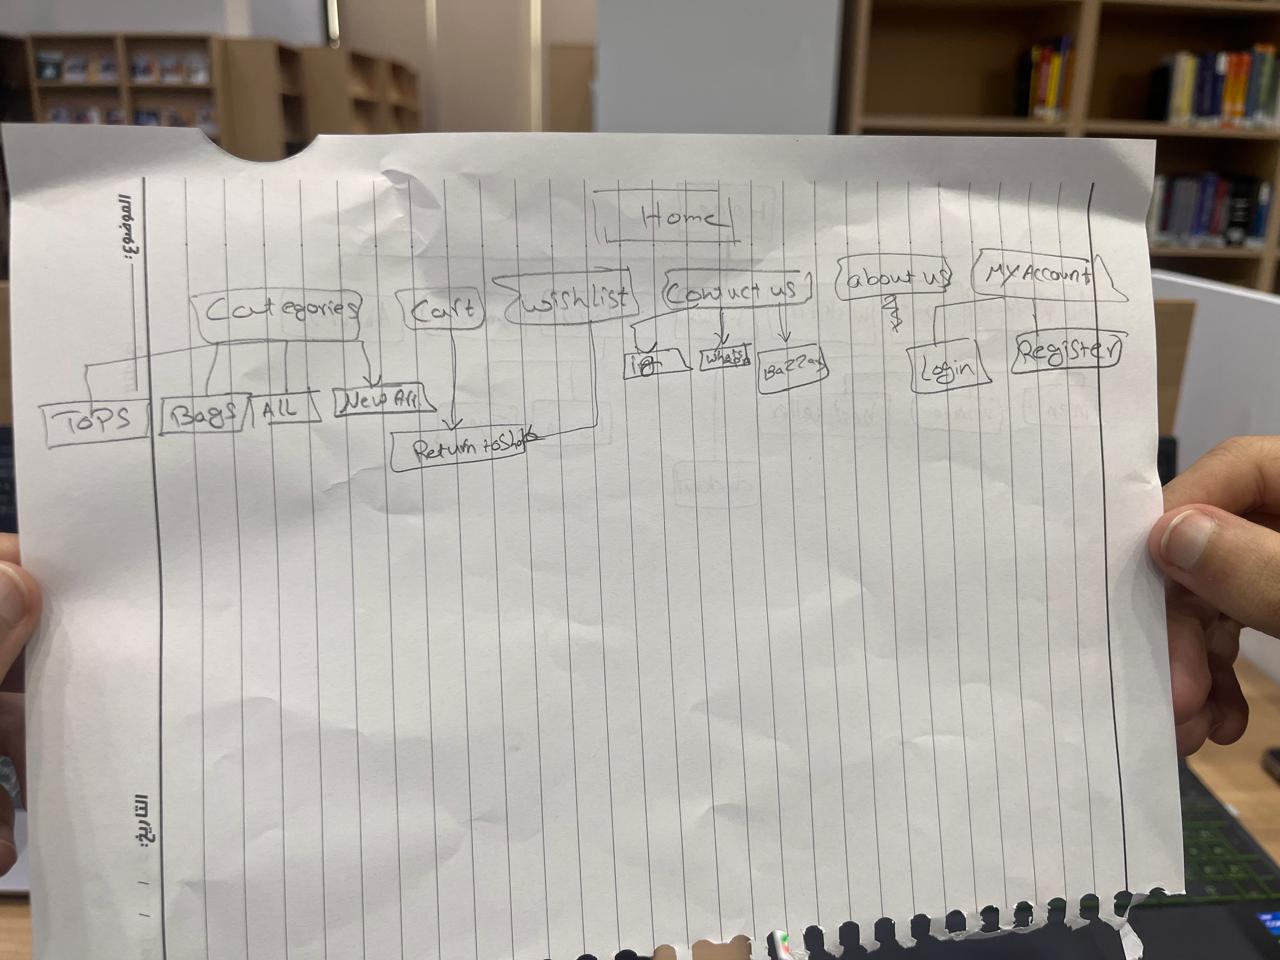 الموضوع:
Home
Categories
Cart
wishlist
Contuct us
about us
My Account
Tops
Bags
ALL
New Arr
Return to Shop
ig
whats
Bazzar
Login
Register
التاريخ: